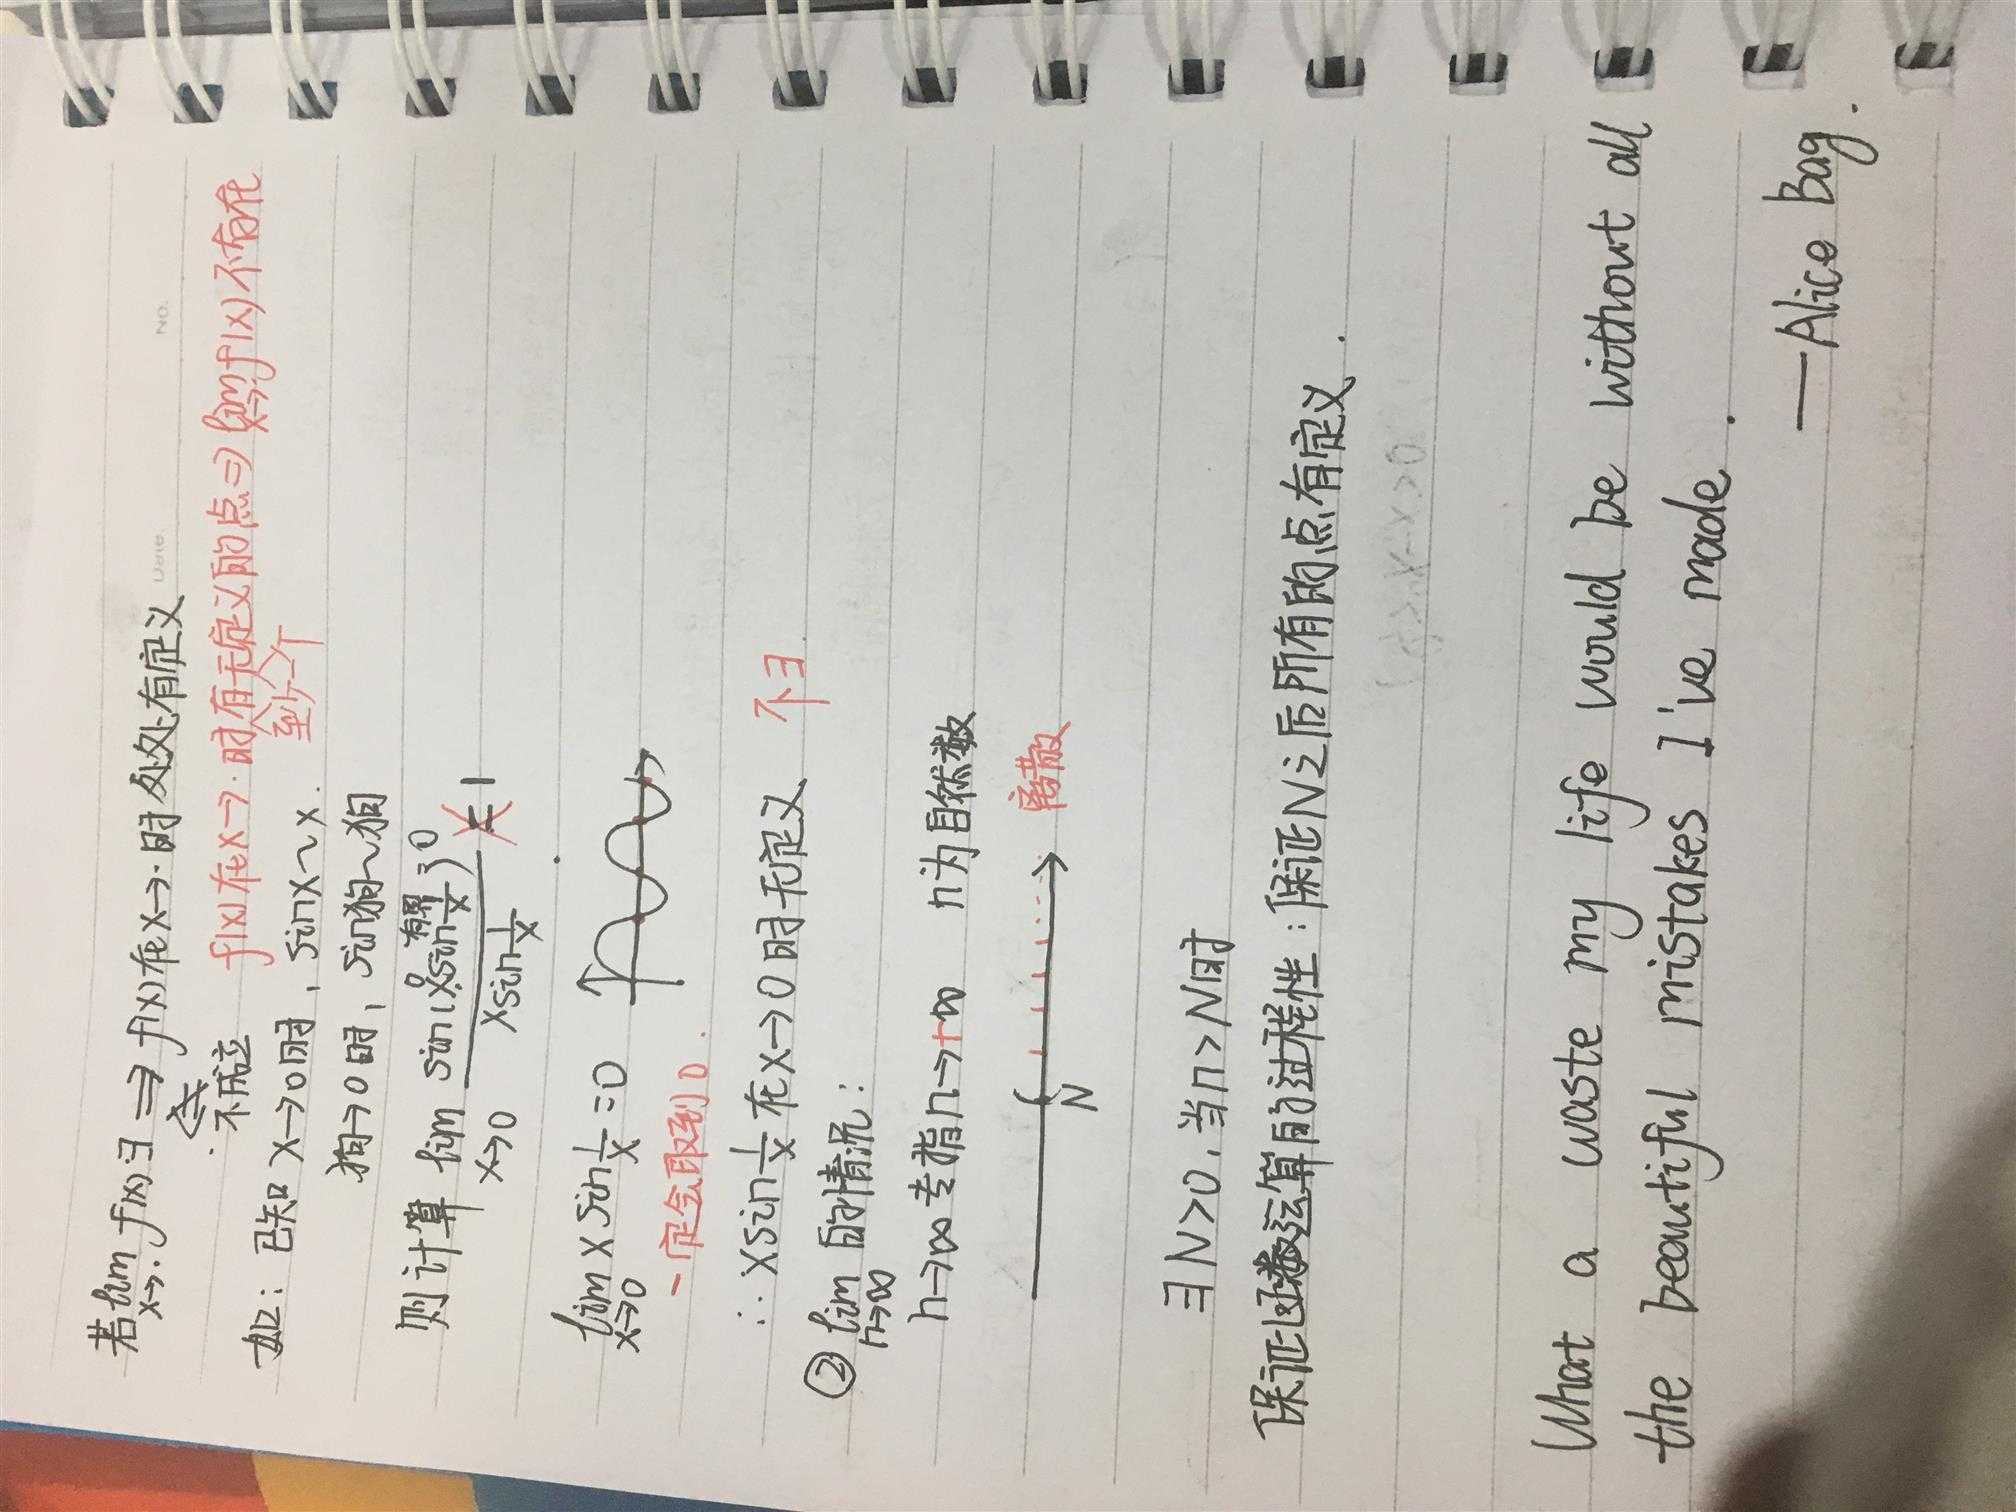 Date. No.
若 lim f(x) ∃ ⇒ f(x)在x→·时处处有定义
x→·
不成立
f(x)在x→·时有无定义的点 ⇒ lim f(x)不存在
x→·
至少一个
如：已知 x→0时，sinx~x.
狗→0时，sin狗~狗
则计算 lim sin(x·sin 1/x) / x sin 1/x = 1
x→0
0 有界 → 0
lim x sin 1/x = 0
x→0
一定会取到0.
∴ x sin 1/x 在x→0时无定义 不∃
② lim 的情况：
n→∞
n→∞专指n→+∞ n为自然数
N 离散
∃N>0，当n>N时
保证函数运算的过程性：保证N之后所有的点有定义.
What a waste my life would be without all
the beautiful mistakes I've made.
—Alice Bag.